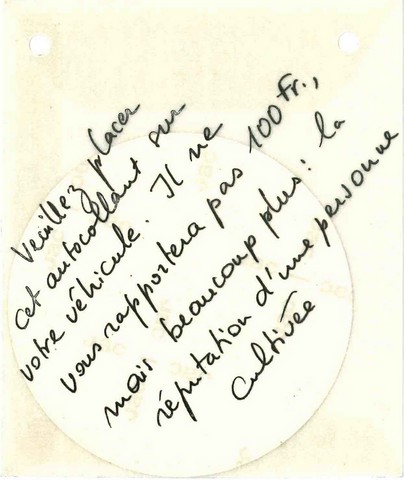 Veuillez placer
cet autocollant sur
votre véhicule. Il ne
vous rapportera pas 100 Fr.,
mais beaucoup plus : la
réputation d'une personne
cultivée